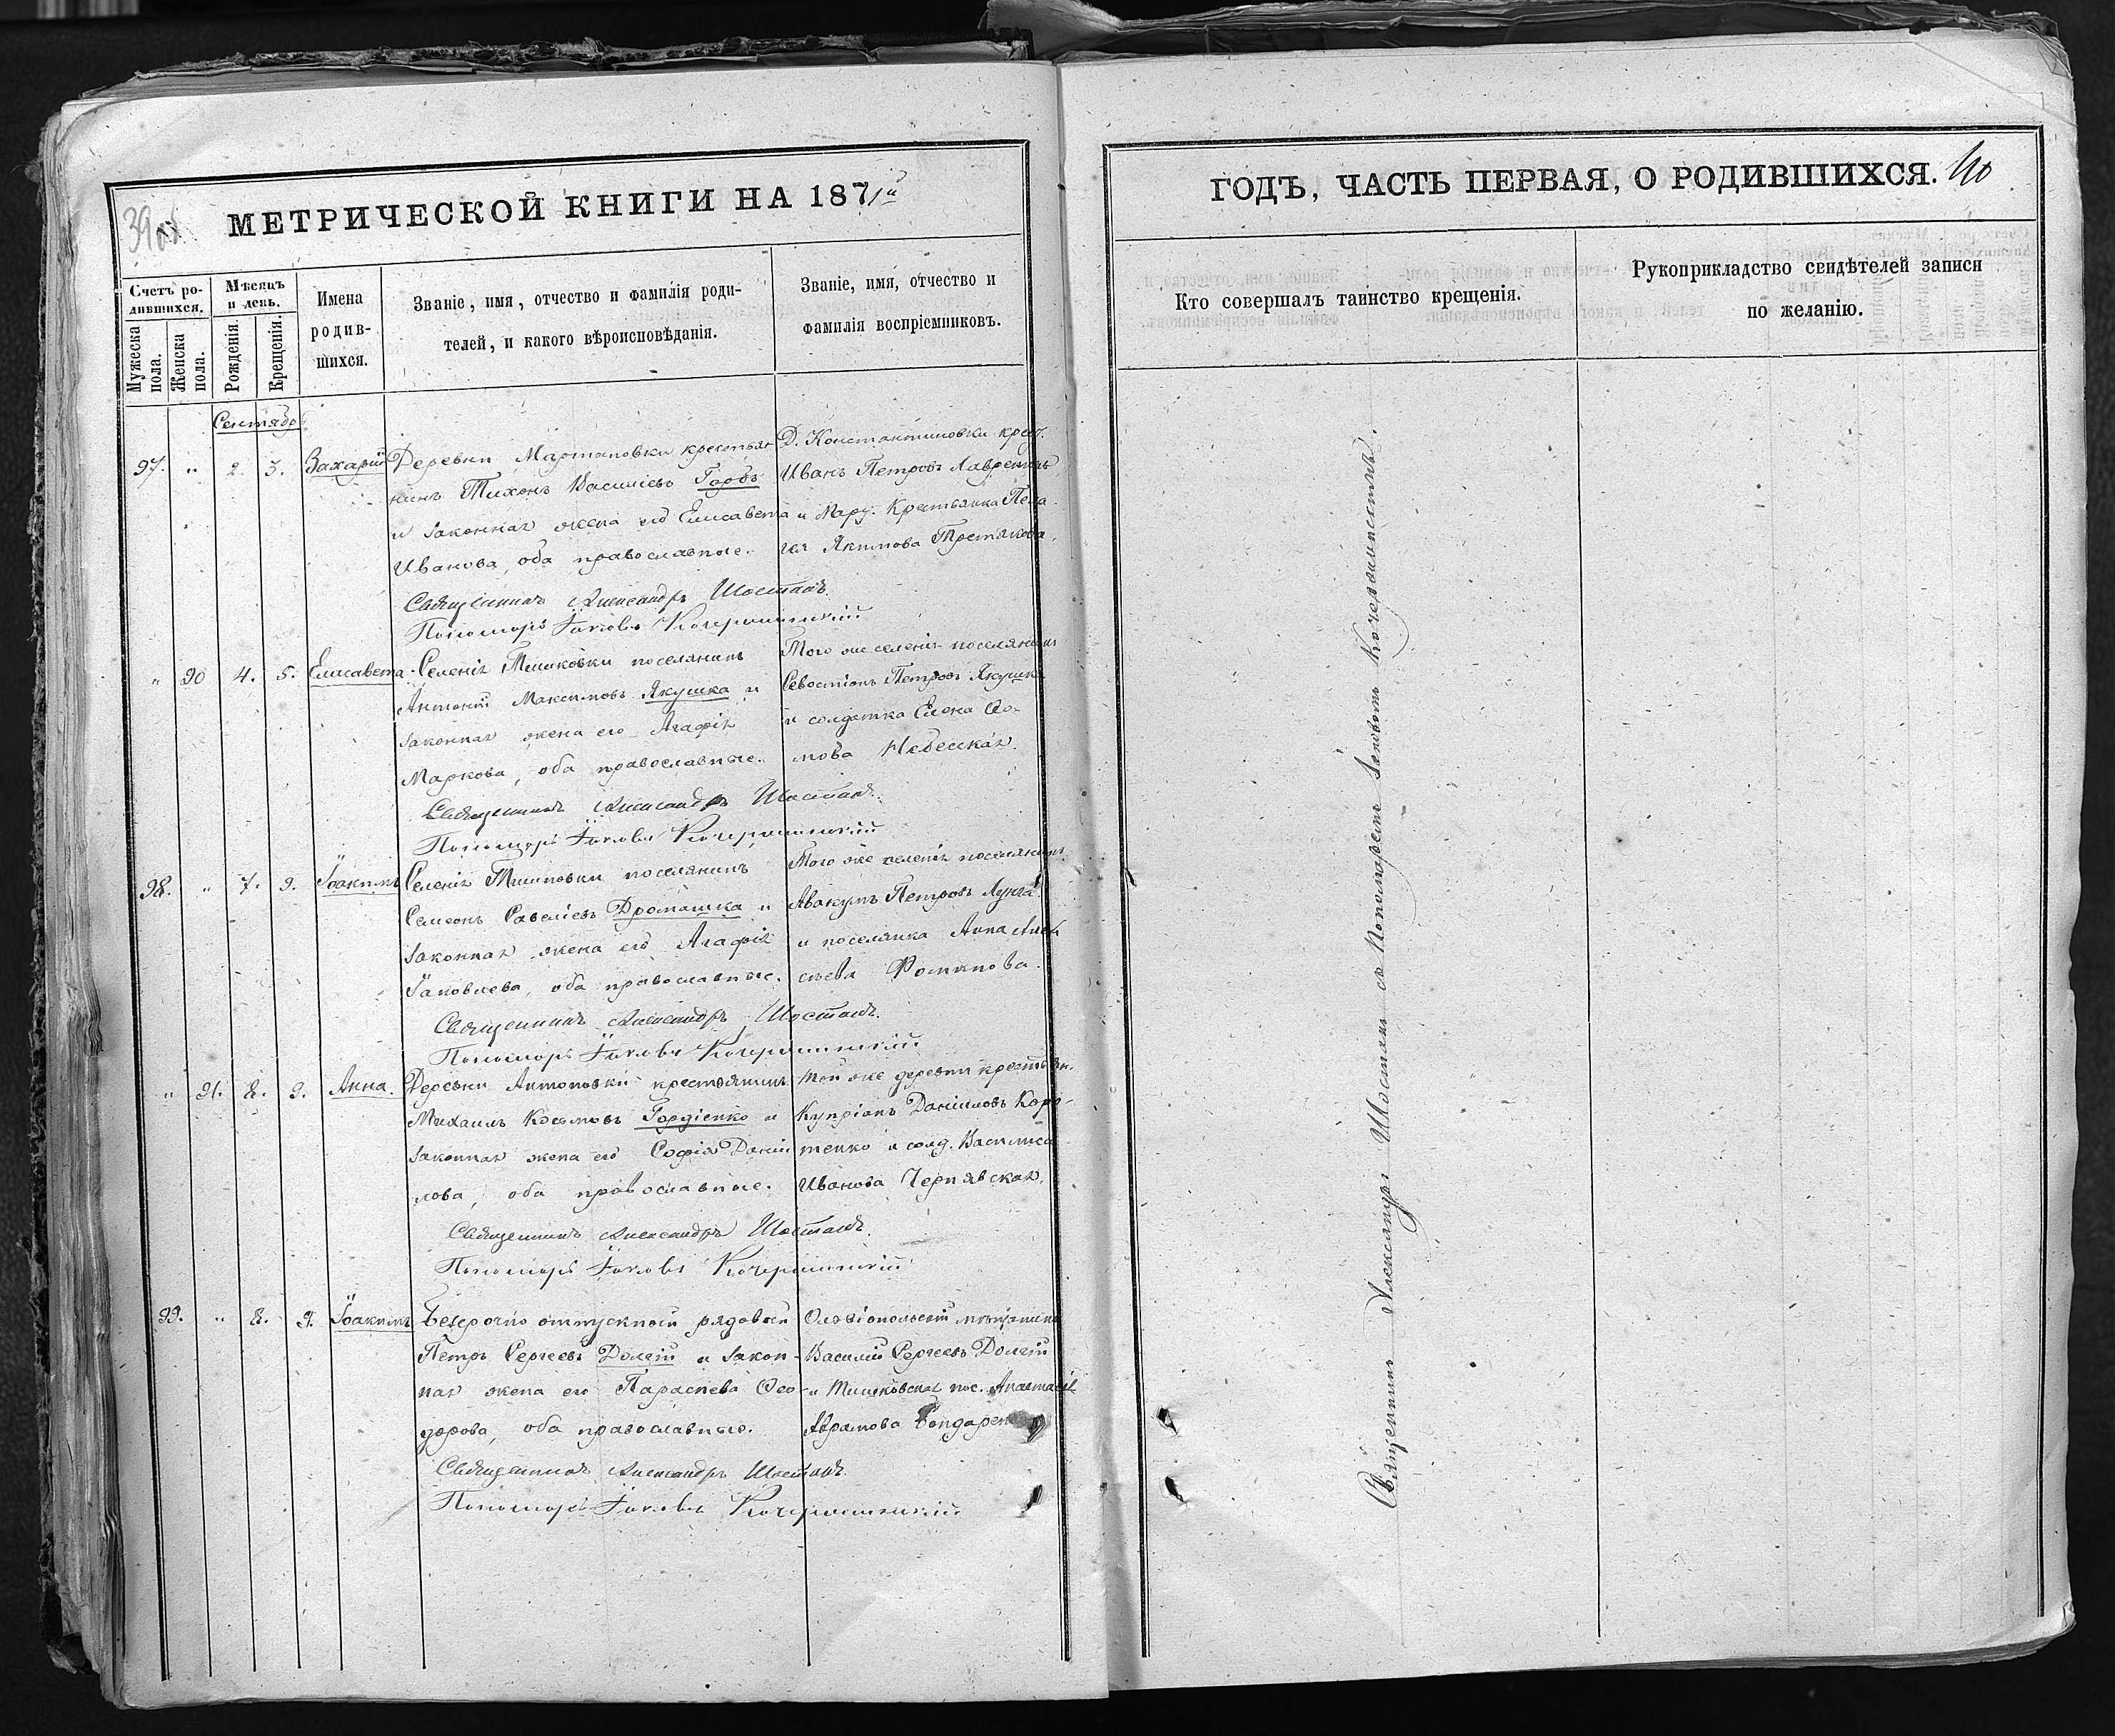 39об.
МЕТРИЧЕСКОЙ КНИГИ НА 1871й
Счетъ родившихся.
Мужеска пола.
Женска пола.
Мѣсяцъ и день.
Рожденія.
Крещенія.
Имена родившихся.
Званіе, имя, отчество и фамилія роди-
телей, и какого вѣроисповѣданія.
Званіе, имя, отчество и
фамилія воспріемниковъ.
Сентябр
97. " 2. 3. Захарій
Деревни Мартоновки крестья-
нинъ Тихонъ Василіевъ Горбъ
и законная жена его Елисавета
Иванова, оба православные.
Д. Константиновки крест.
Иванъ Петровъ
и Мару. Крестьянка Пела-
гія Якимова Третякова.
Священникъ Александръ Шостакъ.
Пономарь Іаковъ
" 90 4. 5. Елисавета
Селенія Тишковки поселянинъ
Антоній Максимовъ Якушка и
законная жена его Агафія
Маркова, оба православные.
Того же селенія поселянинъ
Севостіонъ Петровъ Якушка
и солдатка Елена Ѳо-
мова Небесская.
Священникъ Александръ Шостакъ.
Пономарь Іаковъ
98. " 7. 9. Іоакимъ
Селенія Тишковки поселянинъ
Симеонъ Савеліевъ Дромашка и
законная жена его Агафія
Іаковлева, оба православные.
Того же селенія поселянинъ
Авакумъ Петровъ
и поселянка Анна Алек
сѣева Романова.
Священникъ Александръ Шостакъ.
Пономарь Іаковъ
" 91. 8. 9. Анна.
Деревни Антоновки крестьянинъ
Михаилъ Косьмовъ Гордіенко и
законная жена его Софія Даніи
лова, оба православные.
Той же деревни крестьян.
Купріанъ Даніиловъ Коро-
тенко и солд. Василиса
Иванова Чернявская.
Священникъ Александръ Шостакъ.
Пономарь Іаковъ
99. " 8. 9. Іоакимъ
Безсрочно отпускный рядовый
Петръ Сергеевъ Долгій и закон-
ная жена его Параскева Ѳео-
дорова, оба православные.
Ольвіопольскій мѣщанинъ
Василій Сергеевъ Долгій
и Тишковская пос. Анастасія
Аврамова
Священникъ Александръ Шостакъ.
Пономарь Іаковъ
ГОДЪ, ЧАСТЬ ПЕРВАЯ, О РОДИВШИХСЯ. 40
Кто совершалъ таинство крещенія.
Рукоприкладство свидѣтелей записи
по желанію.
Священникъ Александръ Шостакъ съ Пономаремъ Іаковомъ